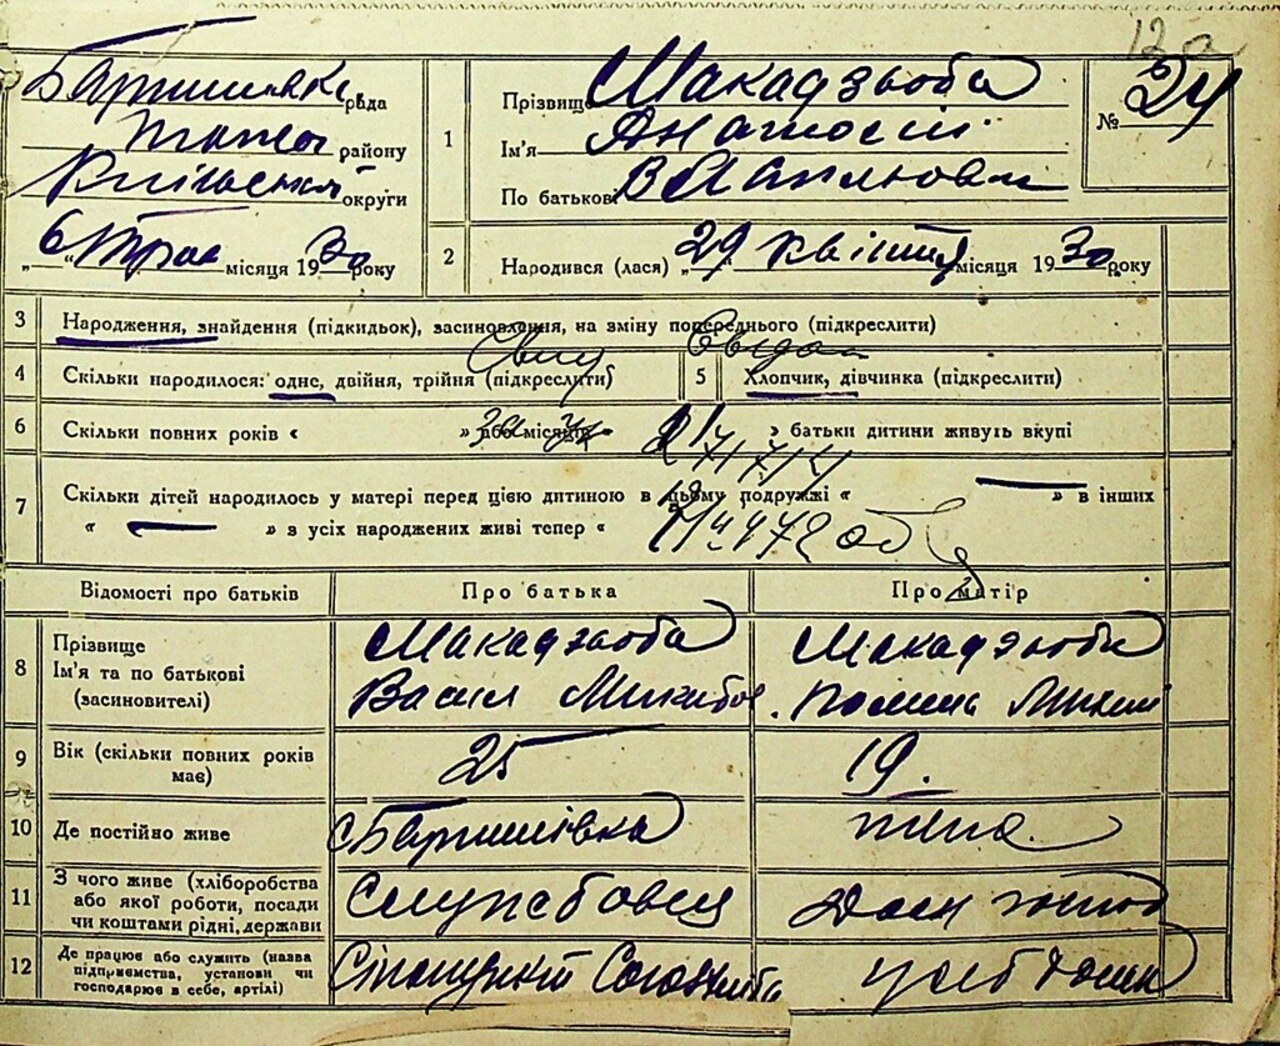 12а
Баришівка рада
того району
Київської округи
„6“ Трав місяця 1930 року
1
Прізвище Макадзьоба
Ім'я Анатолій
По батькові Васильович
№ 24
2
Народився (лася) „29“ квітня місяця 1930 року
3 Народження, знайдення (підкидьок), засиновлення, на зміну попереднього (підкреслити)
4 Скільки народилося: одне, двійня, трійня (підкреслити)
5 Хлопчик, дівчинка (підкреслити)
6 Скільки повних років « » або місяців « » батьки дитини живуть вкупі
7 Скільки дітей народилось у матері перед цією дитиною в цьому подружжі « — » в інших
« — » з усіх народжених живі тепер «
Відомості про батьків Про батька Про матір
8 Прізвище
Ім'я та по батькові
(засиновителі)
Макадзьоба
Васил Микитов
Макадзьоба
9 Вік (скільки повних років
має)
25
19.
10 Де постійно живе
с Баришівка
11 З чого живе (хліборобства
або якої роботи, посади
чи коштами рідні, держави
Службовец
Дом господ
12 Де працює або служить (назва
підприємства, установи чи
господарює в себе, артілі)